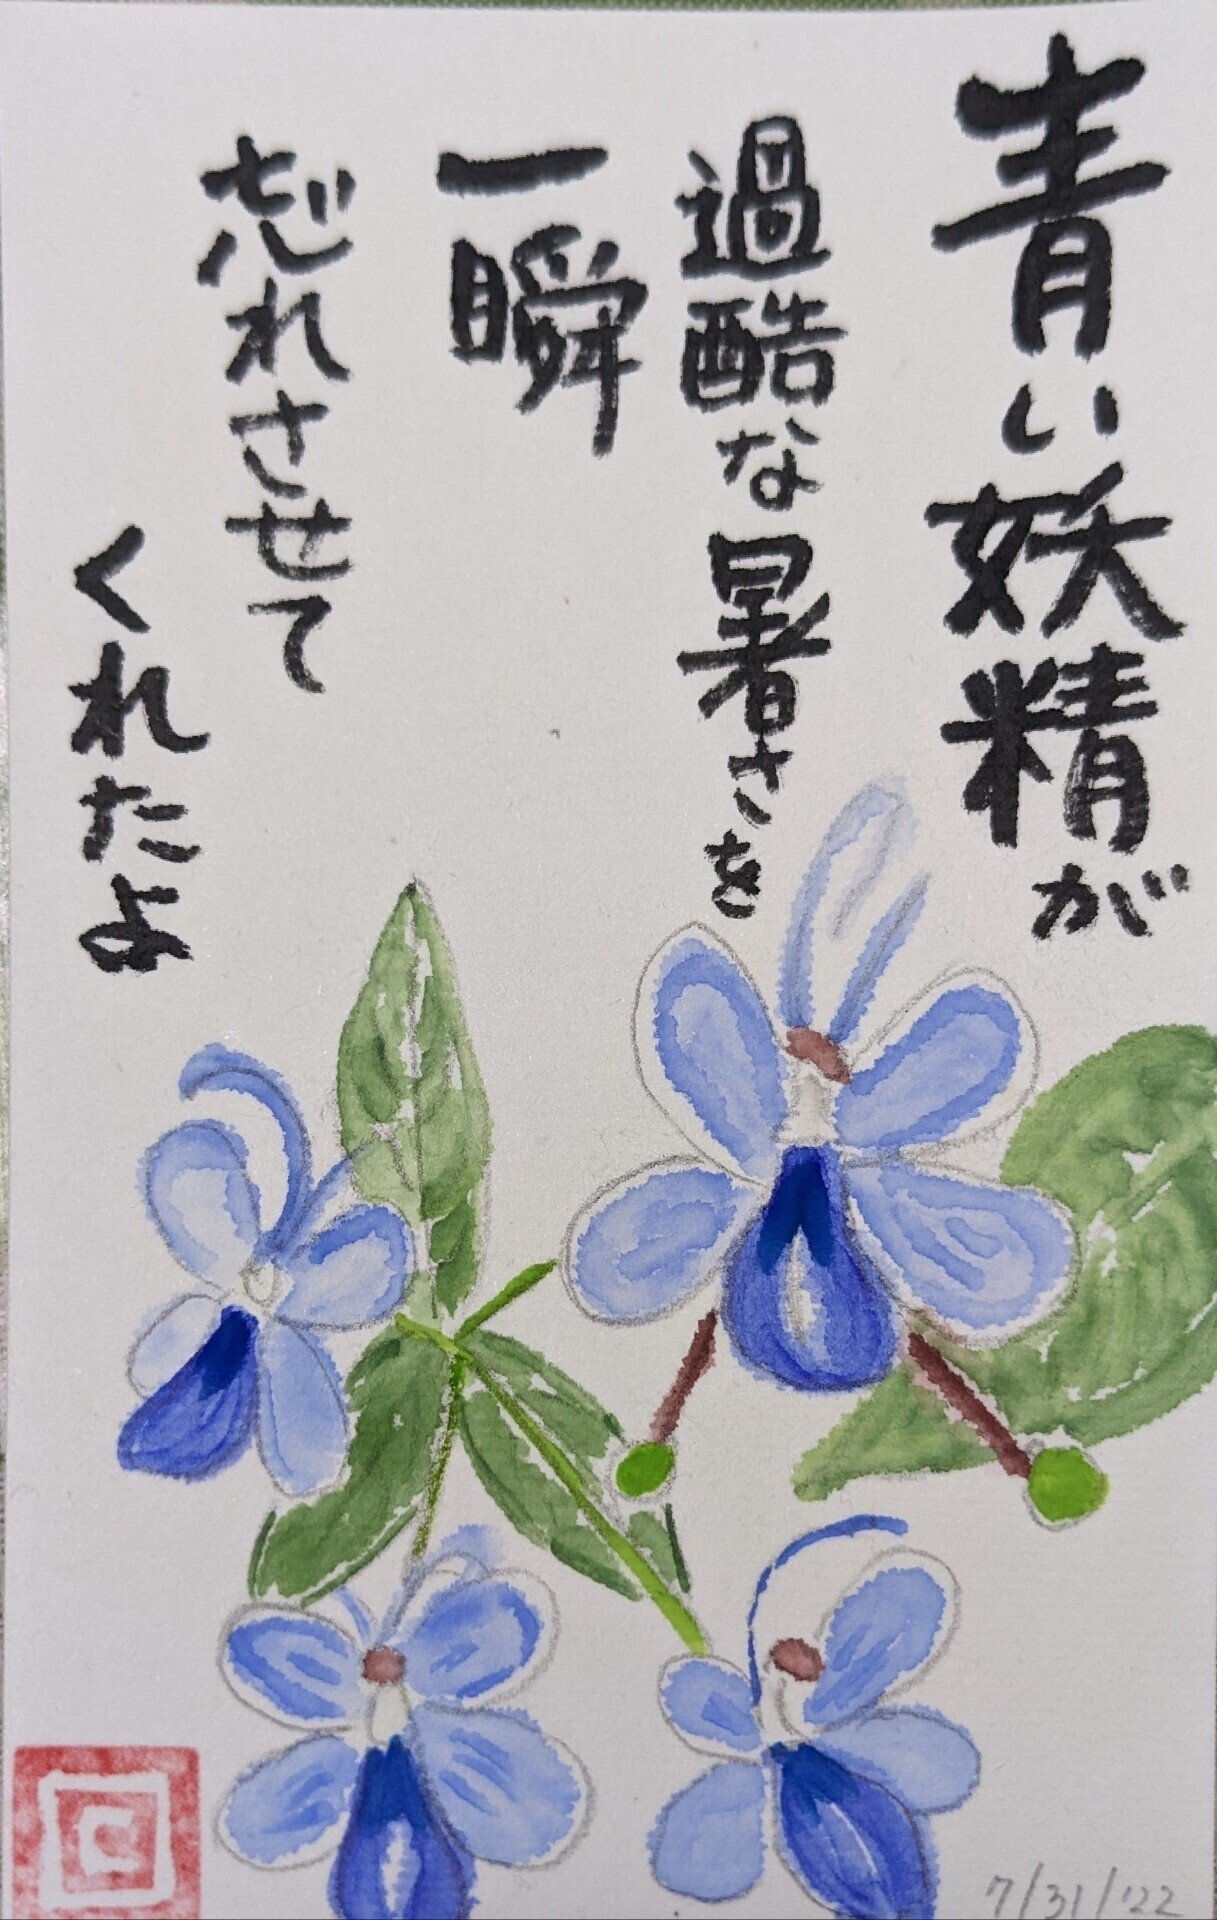 青い妖精が
過酷な暑さを
一瞬
忘れさせて
くれたよ
C
7/31/'22